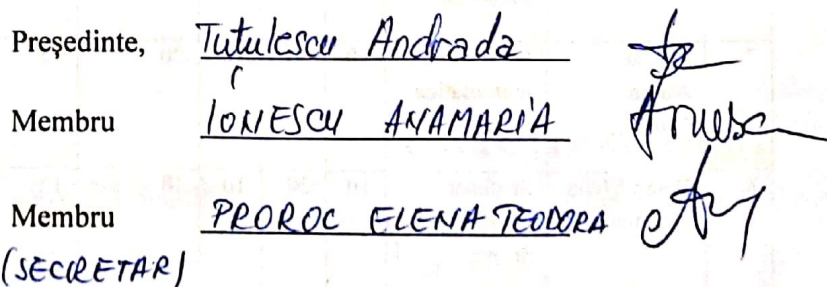 Președinte, Tutulescu Andrada
Membru IONESCU ANAMARIA
Membru PROROC ELENA TEODORA
(SECRETAR)